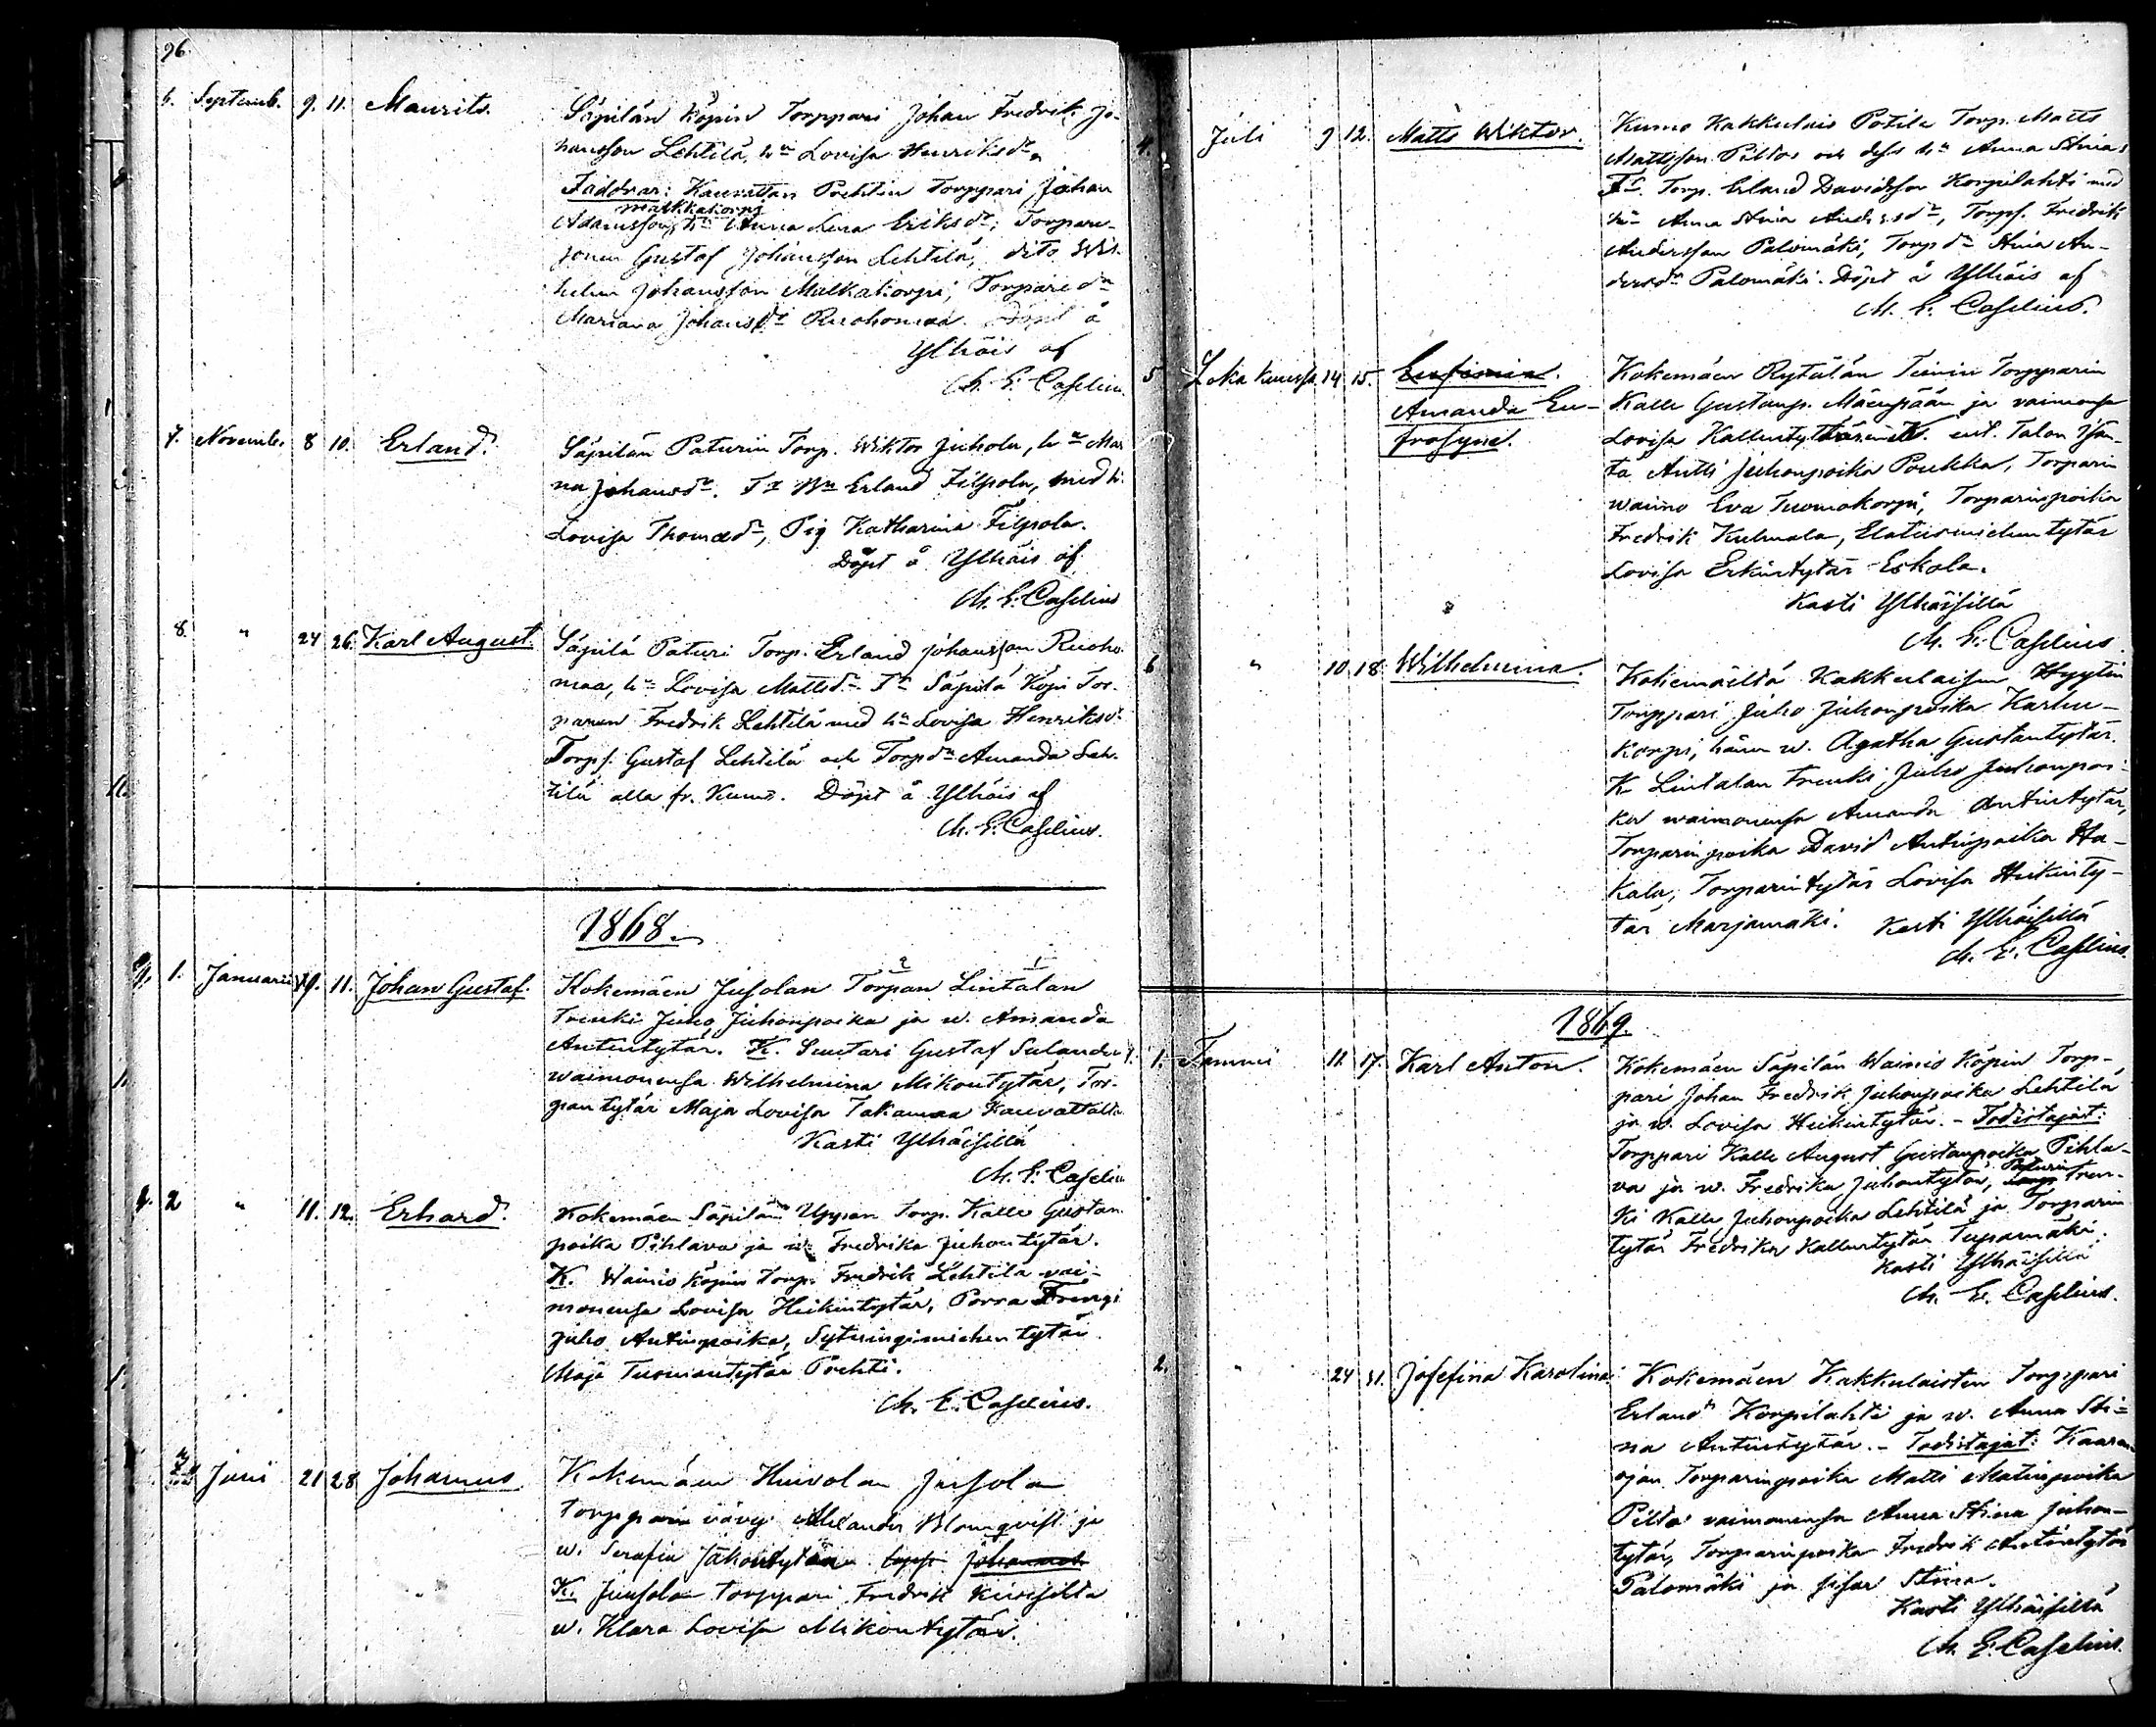 96.
6. Septemb. 9. 11. Maurits. Säpilän Köpin Torppari Johan Fredrik Jo-
hansson Lehtilä, hu Lovisa Henriksdr.
Faddrar: Kauvattan Prehtin Torppari Johan
Malkkakorpi
Adamsson, hu Anna Lena Eriksdr; Torpare-
sonen Gustaf Johansson Lehtilä, dito Wil-
helm Johansson Malkakorpi; Torparedr
Mariana Johansdr Ruohomaa. Döpt å
Ylhäis af
M. E. Caselius.
7. Novemb. 8 10. Erland. Säpilän Paturin Torp. Wiktor Juhola, hu Man-
na Johansdr. Fr Bn Erland Filpola, med h.
Lovisa Thomasdr, Pig Katharina Filpola.
Döpt å Ylhäis af
M. E. Caselius
8. " 24 26. Karl August. Säpilä Paturi Torp. Erland Johansson Ruoho-
maa, hu Lovisa Mattsdr. Fr Säpilä Köpi Tor-
paren Fredrik Lehtilä med hu Lovisa Henriksdr
Torps. Gustaf Lehtilä och Torpdr Amanda Leh-
tilä alla fr. Kumo. Döpt å Ylhäis af
M. E. Caselius.
1868.
1. Januarii 9. 11. Johan Gustaf. Kokemäen Jusolan Torpan Lintalan
Trenki Juho Juhonpoika ja w. Amanda
Antintytär. K. Suutari Gustaf Sulander
waimonensa Wilhelmina Mikontytär, Tor-
pantytär Maja Lovisa Takamaa Kauvattalta
Kasti Ylhäisillä
M. E. Caselius
2 " 11. 12. Erhard. Kokemäen Säpilän Uppan Torp. Kalle Gustan
poika Pihlava ja w. Fredrika Juhontytär.
K. Wainio Köpin Torp. Fredrik Lehtilä vai-
monensa Lovisa Heikintytär, Porra Trengi
Juho Antinpoika, Sytningimiehen tytär
Maja Tuomantytär Prehti.
M. E. Caselius.
Juni 21 28 Johannes Kokemäen Huivolan Jusola
torpparin vävy Alexander Blomqvist ja
w. Serafia Jakontytär. lapsi Johannes
K. Juusolan torppari Fredrik Kivisilta
w. Klara Lovisa Mikontytär.
4. Juli 9 12. Matts Wiktor. Kumo Kakkulais Potila Torp. Matts
Mattsson Piltos och dess hu Anna Stina
Fr. Torp. Erland Davidsson Korpilahti med
hu Anna Stina Andersdr, Torps. Fredrik
Andersson Palomäki, Torpdr Stina An-
dersdr Palomäki. Döpt å Ylhäis af
M. E. Caselius.
5 Lokakuussa 14 15. Eufimia. Kokemäen Rytälän Tiinin Torpparin
Amanda Eu- Kalle Gustanp. Mäenpään ja vaimonsa
frosyne. Lovisa Kallentyttären K. ent. Talon Isän-
tä Antti Juhonpoika Poukka, Torparin
waimo Eva Tuomokorpi, Torparinpoika
Fredrik Kulmala, Elatusmiehentytär
Lovisa Erkintytär Eskola.
Kasti Ylhäisillä
M. E. Caselius.
6 " 10. 18. Wilhelmina. Kokemäeltä Kakkulaisen Hyytin
Torppari Juho Juhonpoika Karhu-
korpi, hänen w. Agatha Gustantytär.
K Lintalan Trenki Juho Juhonpoi-
ka waimonensa Amanda Antintytär,
Torparinpoika David Antinpoika Ha-
kala, Torparintytär Lovisa Heikinty-
tär Marjamäki. Kasti Ylhäisillä
M. E. Caselius.
1869.
1. Tammi 11. 17. Karl Anton. Kokemäen Säpilän Wainio Köpin Torp-
pari Johan Fredrik Juhonpoika Lehtilä
ja w. Lovisa Heikintytär. - Todistajat:
Torppari Kalle August Gustanpoika Pihla-
va ja w. Fredrika Juhontytär, Paturin Tren-
ki Kalle Juhonpoika Lehtilä ja Torparin
tytär Fredrika Kallentytär Tuparmäki.
Kasti Ylhäisillä
M. E. Caselius.
2. " 24 31. Josefina Karolina. Kokemäen Kakkulaisten Torppari
Erland Korpilahti ja w. Anna Sti-
na Antintytär. - Todistajat: Kaaran-
ojan Torparinpoika Matti Matinpoika
Piltos vaimonensa Anna Stina Juhon-
tytär, Torparinpoika Fredrik Antintytär
Palomäki ja sisar Stina.
Kasti Ylhäisillä
M. E. Caselius.